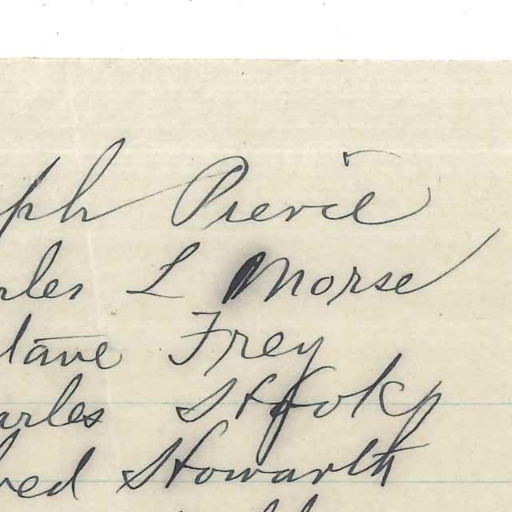 ph Pierce
rles L Morse
tave Frey
arles
red Howarth